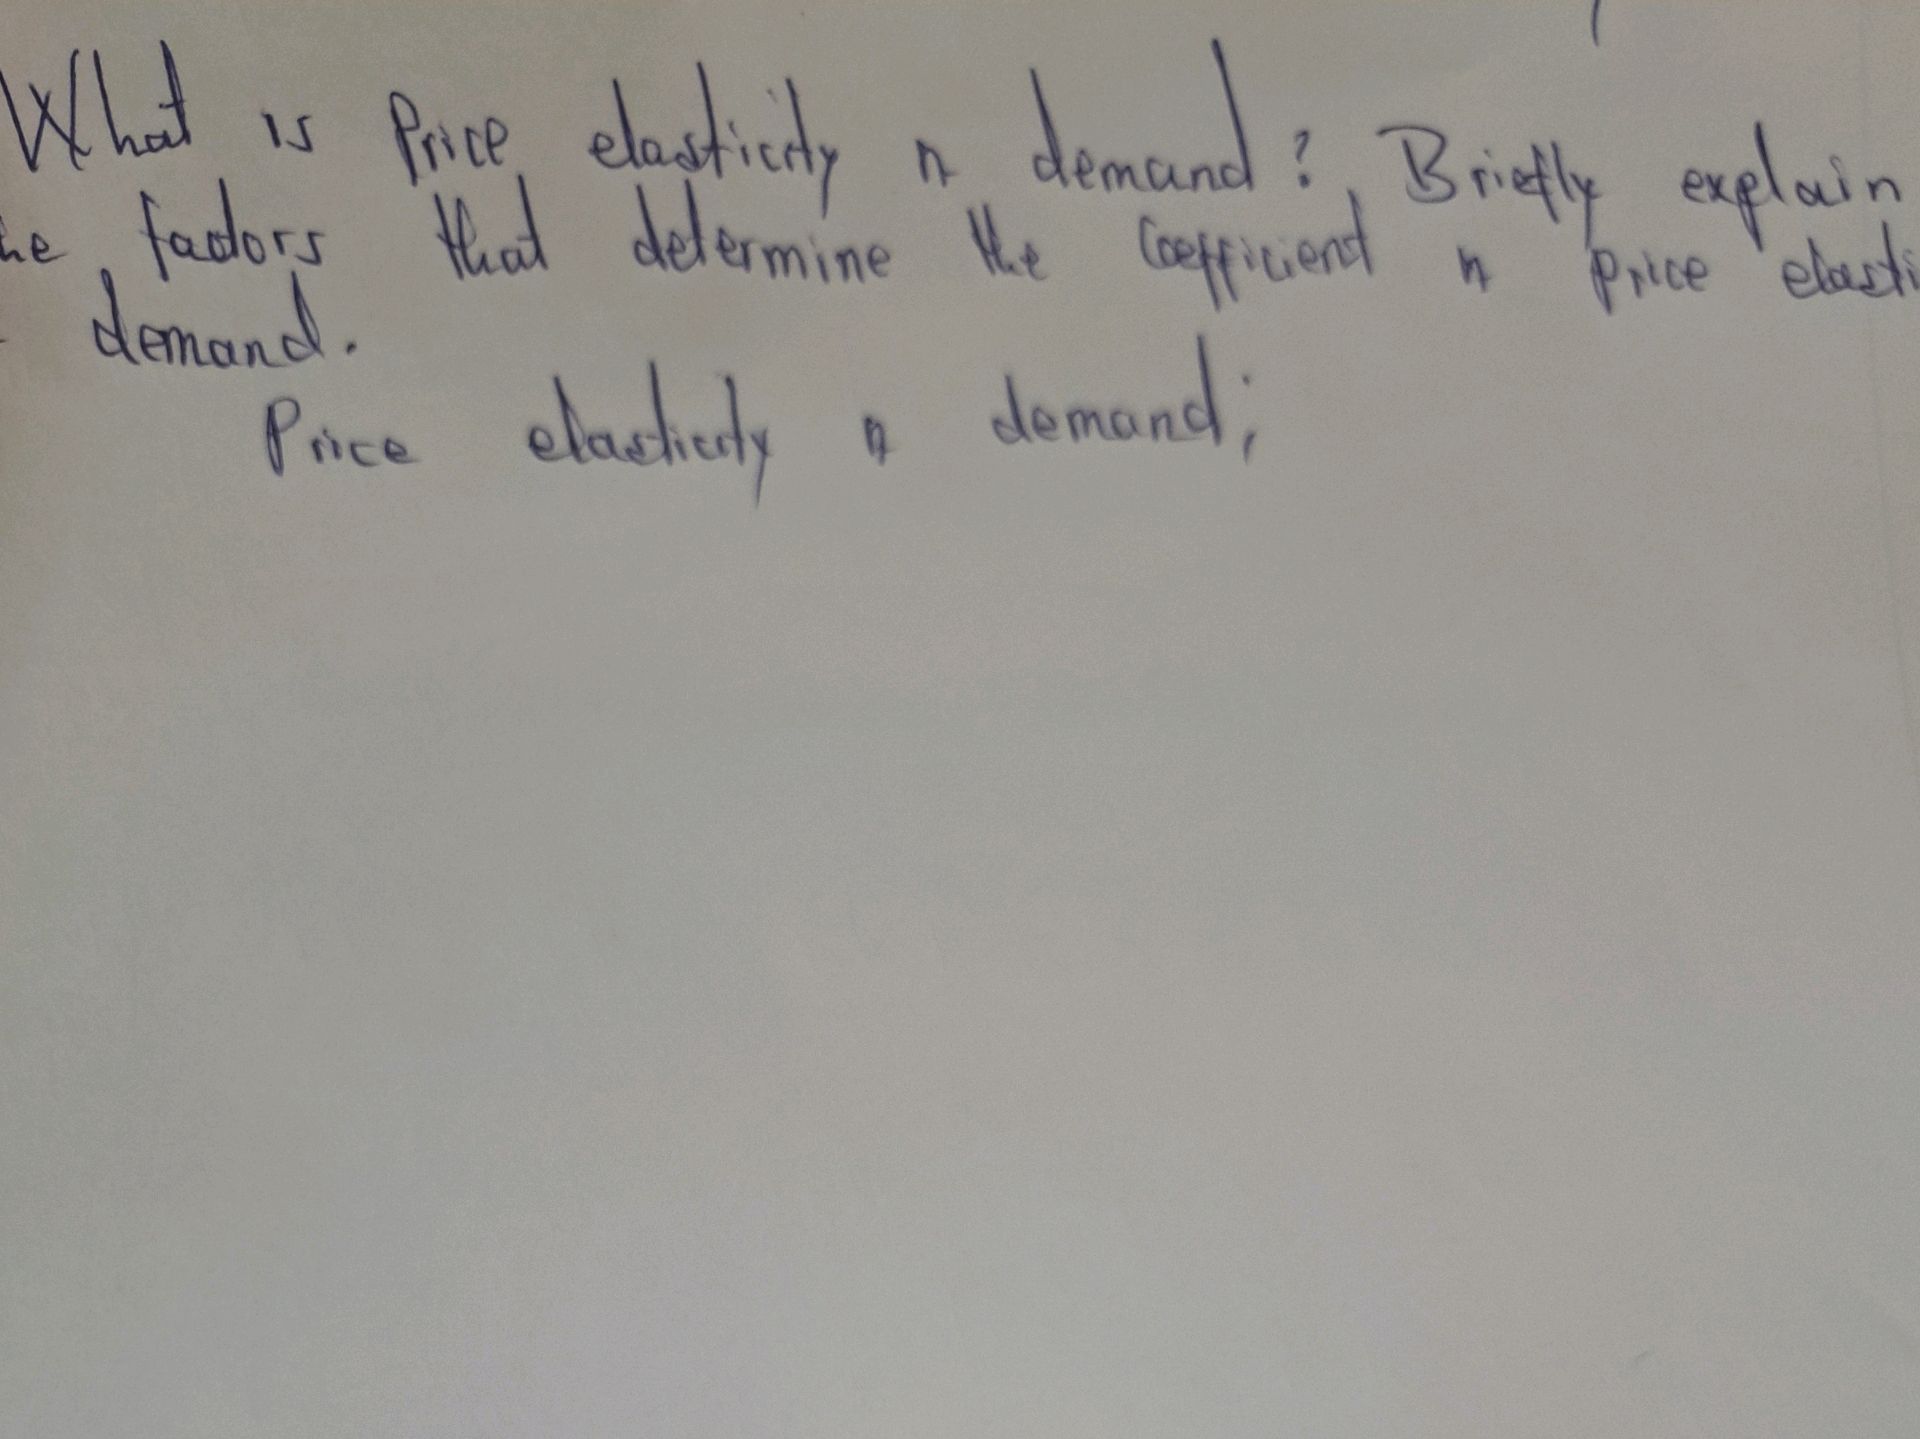 What is Price elasticity of demand? Briefly explain
he factors that determine the Coefficient of price elasti
demand.
Price elasticity of demand;